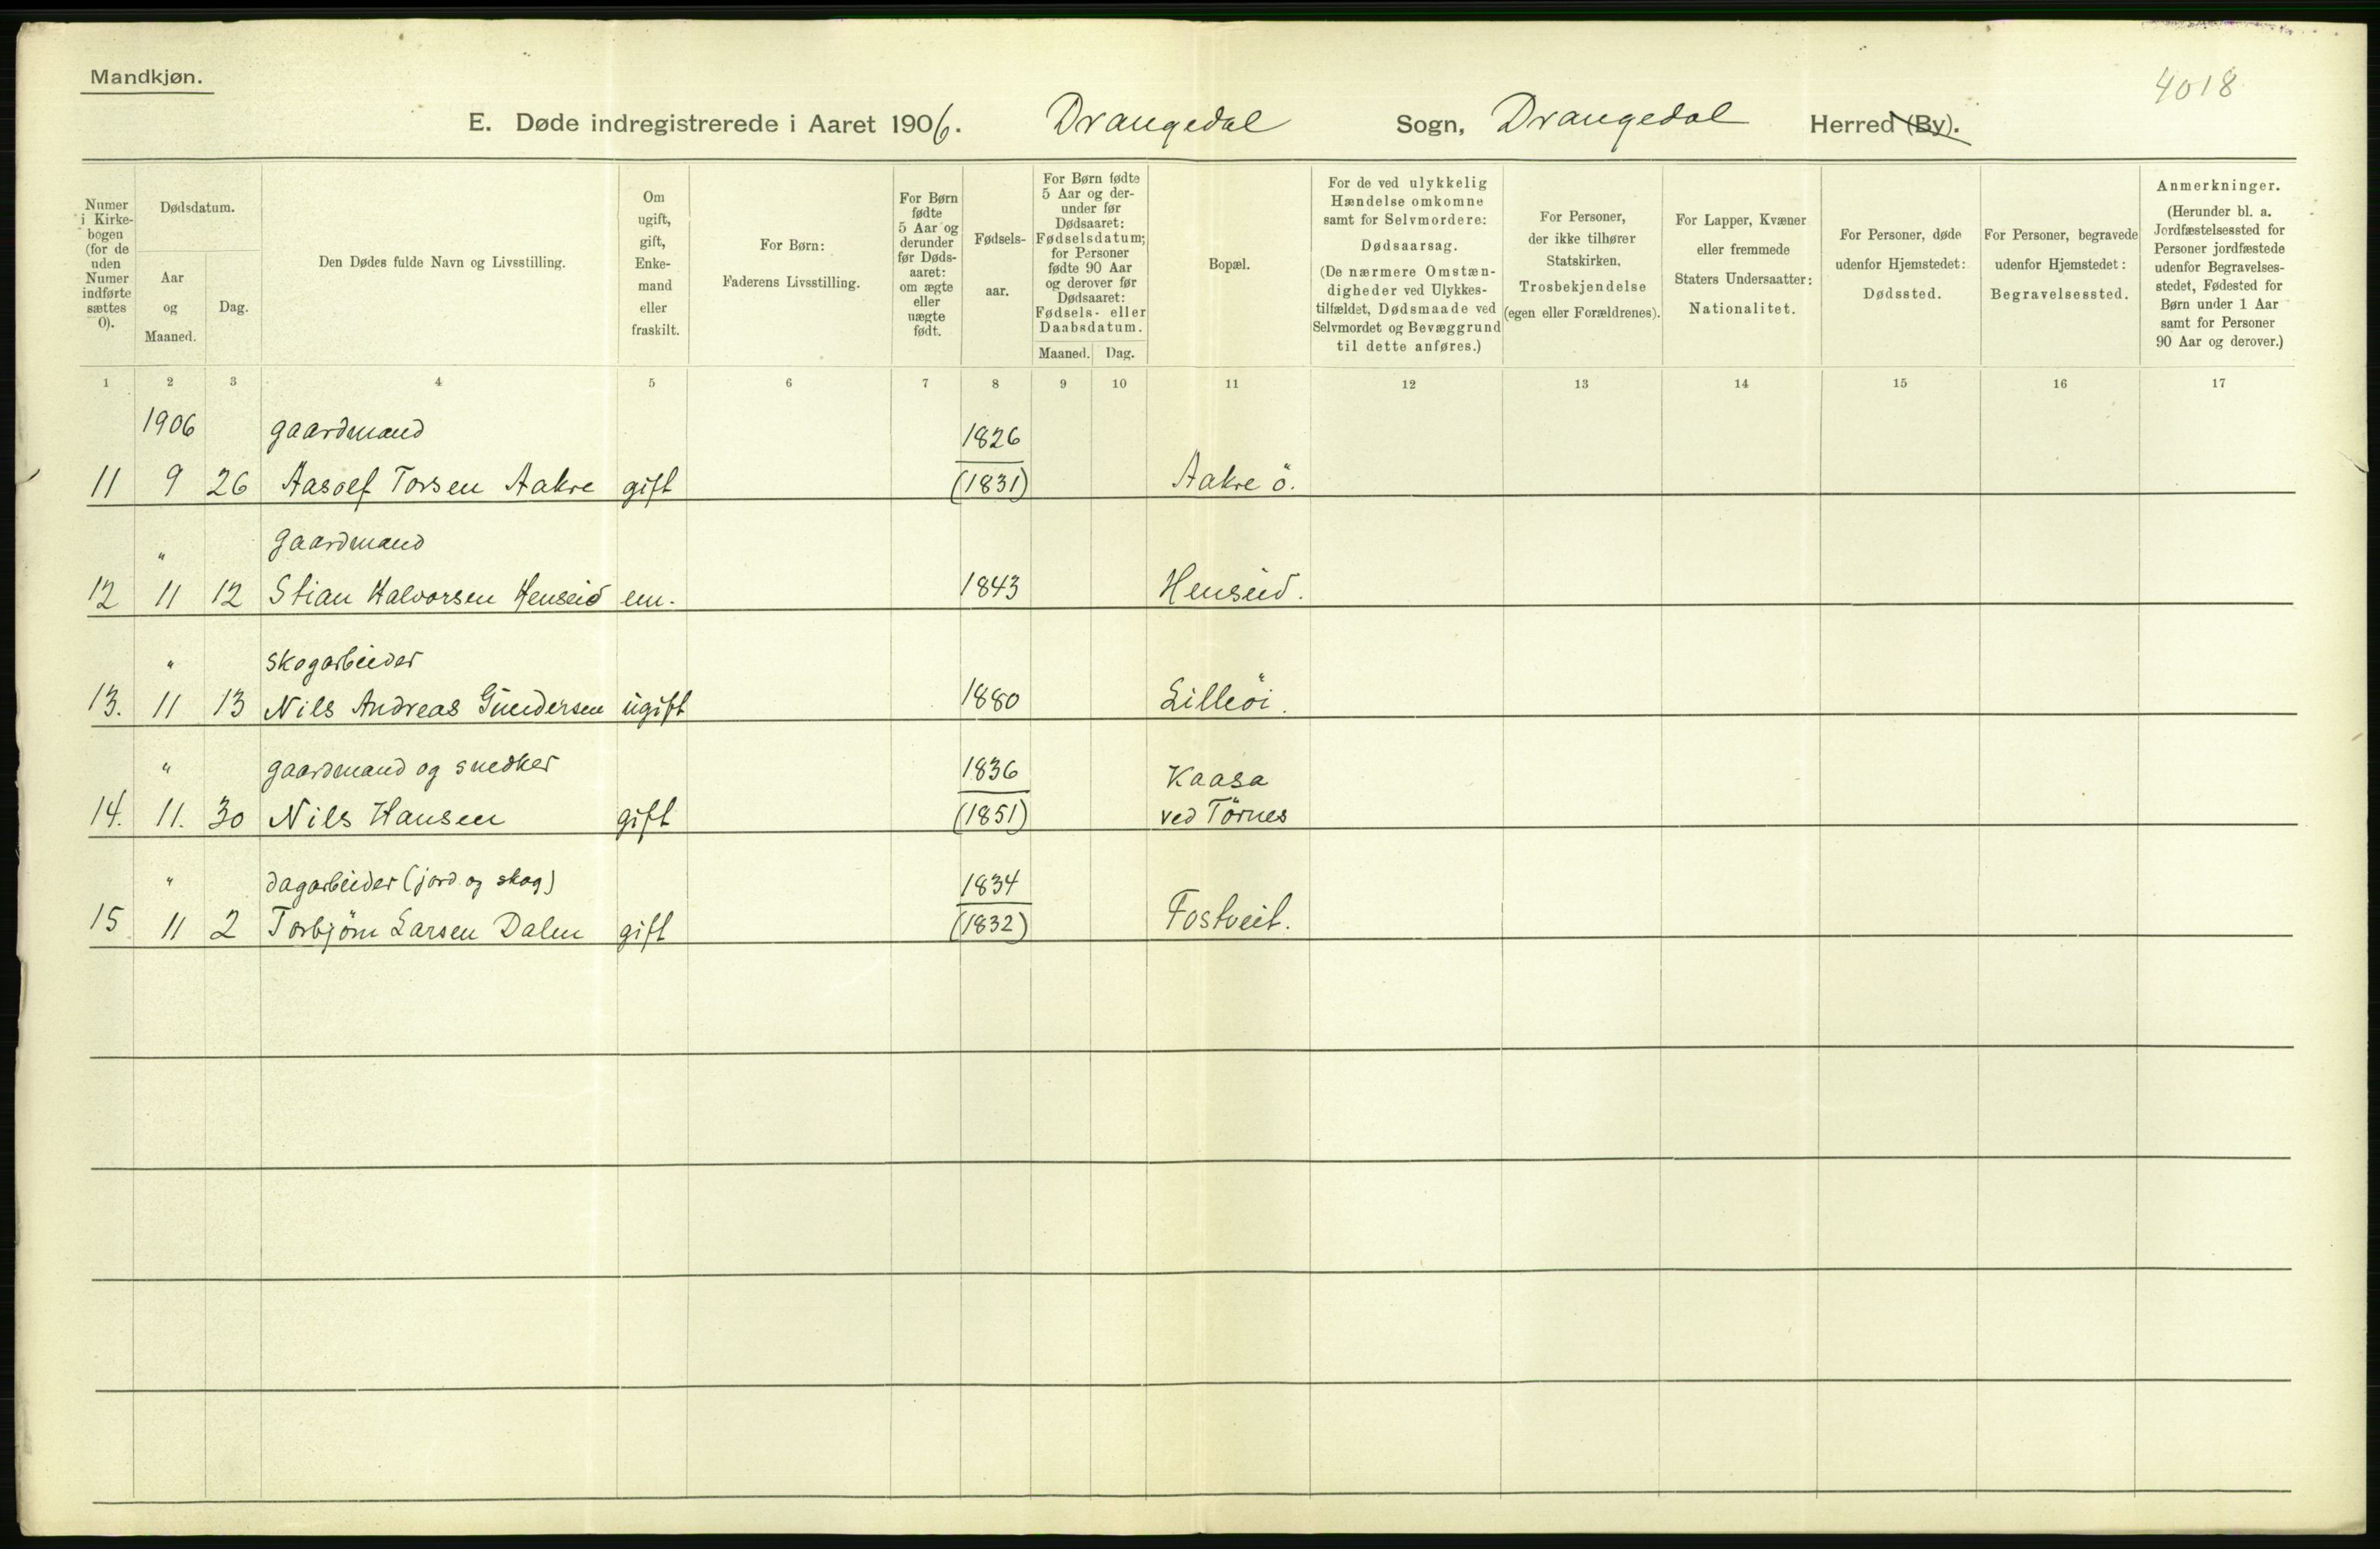 Mandkjøn.
4018
E. Døde indregistrerede i Aaret 1906. Drangedal Sogn, Drangedal Herred (By).
Numer i Kirkebogen (for de uden Numer indførte sættes 0).
Dødsdatum.
Aar og Maaned.
Dag.
Den Dødes fulde Navn og Livsstilling.
Om ugift, gift, Enkemand eller fraskilt.
For Børn:
Faderens Livsstilling.
For Børn fødte 5 Aar og derunder før Dødsaaret: om ægte eller uægte født.
Fødselsaar.
For Børn fødte 5 Aar og derunder før Dødsaaret: Fødselsdatum; for Personer fødte 90 Aar og derover før Dødsaaret: Fødsels- eller Daabsdatum.
Maaned. Dag.
Bopæl.
For de ved ulykkelig Hændelse omkomne samt for Selvmordere:
Dødsaarsag.
(De nærmere Omstændigheder ved Ulykkestilfældet, Dødsmaade ved Selvmordet og Bevæggrund til dette anføres.)
For Personer, der ikke tilhører Statskirken.
Trosbekjendelse
(egen eller Forældrenes).
For Lapper, Kvæner eller fremmede Staters Undersaatter:
Nationalitet.
For Personer, døde udenfor Hjemstedet:
Dødssted.
For Personer, begravede udenfor Hjemstedet:
Begravelsessted.
Anmerkninger.
(Herunder bl. a. Jordfæstelsessted for Personer jordfæstede udenfor Begravelsesstedet, Fødested for Børn under 1 Aar samt for Personer 90 Aar og derover.)
1 2 3 4 5 6 7 8 9 10 11 12 13 14 15 16 17
1906 gaardmand 1826
11 9 26 Aasolf Torsen Aakre gift (1831) Aakre ö.
" gaardmand
12 11 12 Stian Halvorsen Henseid em. 1843 Henseid.
" skogarbeider
13. 11 13 Nils Andreas Gundersen ugift 1880 Lilleöi.
" gaardmand og snedker 1836 Kaasa
14. 11. 30 Nils Hansen gift (1851) ved Törnes
" dagarbeider (jord og skog) 1834
15 11 2 Torbjörn Larsen Dalen gift (1832) Fostveit.